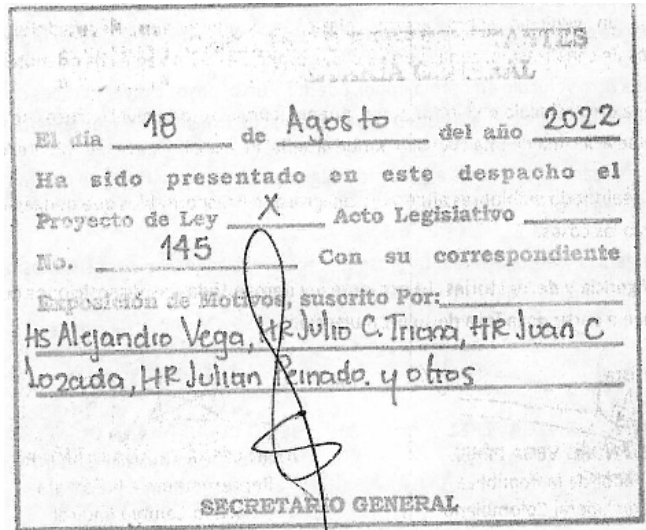 El día 18 de Agosto del año 2022
Ha sido presentado en este despacho el
Proyecto de Ley X Acto Legislativo
No. 145 Con su correspondiente
Exposición de Motivos, suscrito Por:
HS Alejandro Vega, HR Julio C. Triana, HR Juan C
Lozada, HR Julian Peinado. y otros
SECRETARIO GENERAL